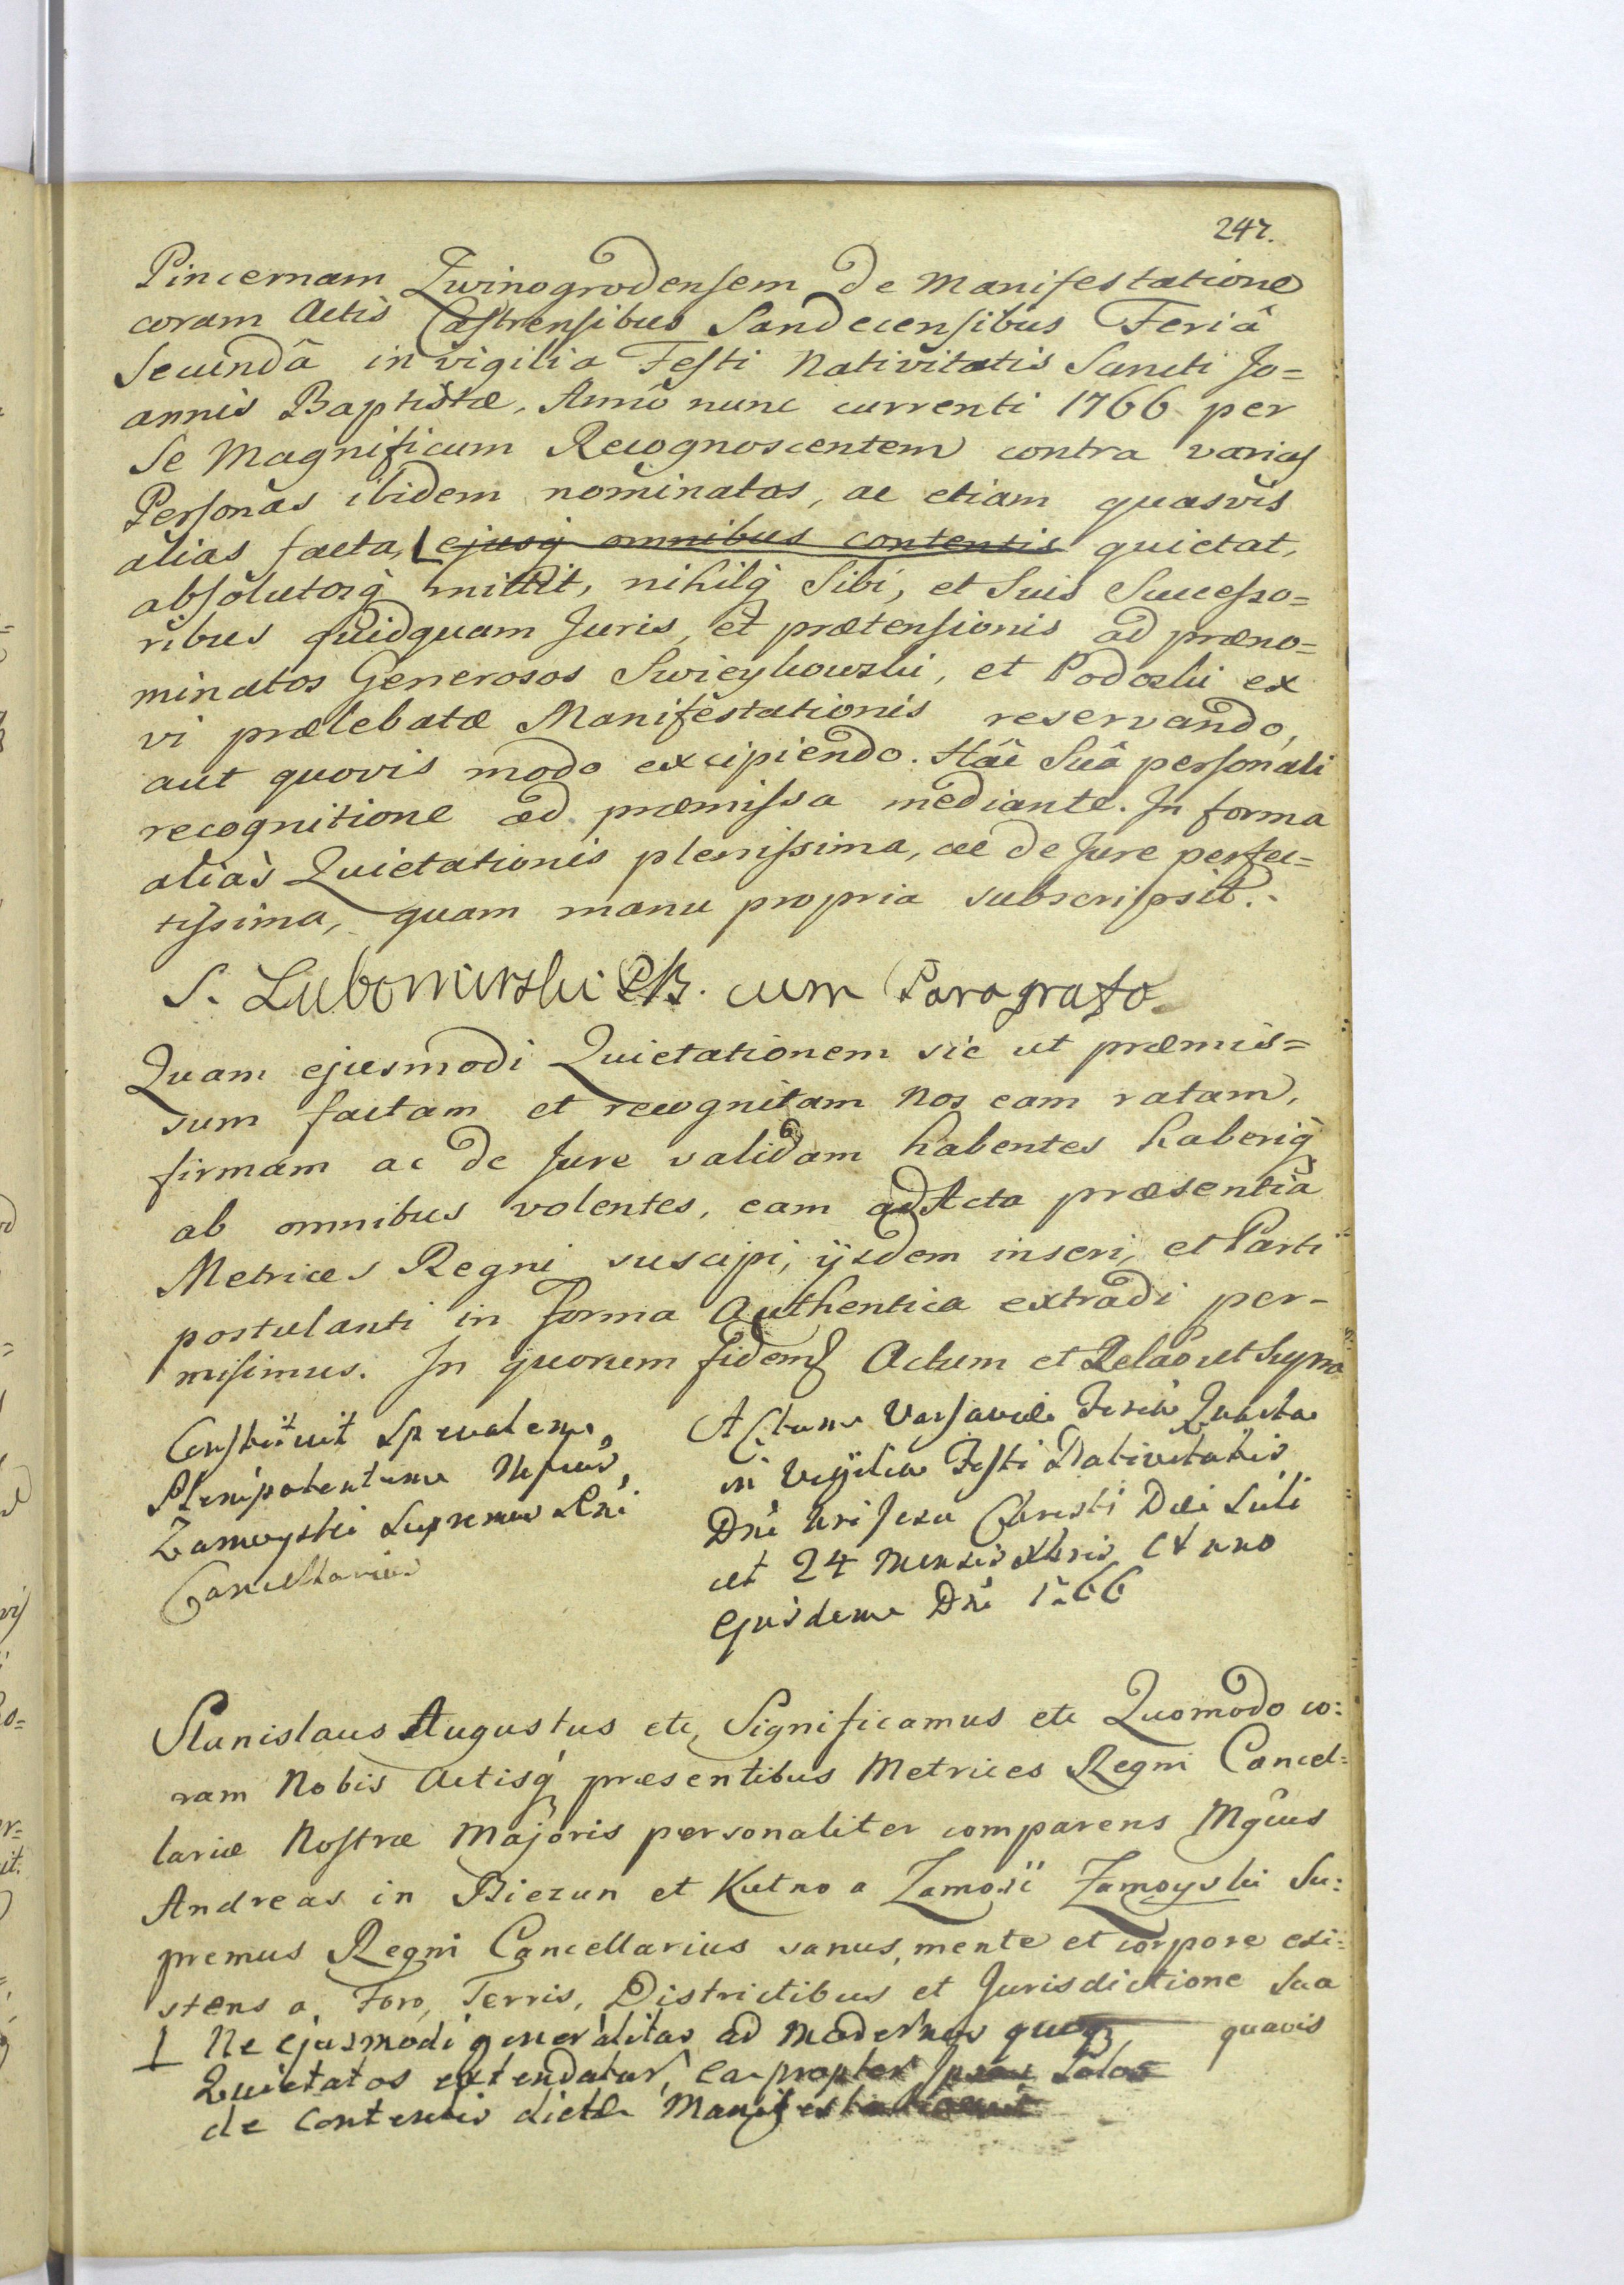 247.
Pincernam Zwinogrodensem de Manifestatione
coram Actis Castrensibus Sandecensibus Feriâ
Secundâ in vigilia Festi Nativitatis Sancti Jo=
annis Baptistæ, Anno nunc currenti 1766 per
Se Magnificum Recognoscentem contra varias
Personas ibidem nominatas, ac etiam quasvis
alias facta, ejusq omnibus contentis quietat,
absolutosq mittit, nihilq Sibi, et Suis Successo=
ribus quidquam Juris, et prætensionis ad præno=
minatos Generosos Swieykowski, et Podoski ex
vi prælebatæ Manifestationis reservando,
aut quovis modo excipiendo. Hâc Suâ personali
recognitione ad præmissa mediante. In forma
aliàs Quietationis plenissima, ac de Jure perfec=
tissima, quam manu propria subscripsit.
S. Lubomirski cum Paragrafo
Quam ejusmodi Quietationem sic ut præmis=
sum factam et recognitam Nos eam ratam,
firmam ac de Jure validam habentes haberiq
ab omnibus volentes, eam ad Acta præsentia
Metrices Regni suscipi, ijsdem inseri, et Parti
postulanti in forma Authentica extradi per=
misimus. In quorum fidem Actum et Relaõ ut Supra
Constituit Spēcialem
Plenipotentem
Zamoyski Supremus
Cancellarius
Actum Varsaviæ Feria Quarta
in Vigilia Festi Nativitatis
Dni Nri Jesu Christi Dei
24 Mensis Xbris Anno
Ejusdem Dni 1766
Stanislaus Augustus etc, Significamus etc Quomodo co:
ram Nobis Actisq præsentibus Metrices Regni Cancel=
lariæ Nostræ Majoris personaliter comparens Mgcus
Andreas in Biezun et Kutno a Zamość Zamoyski Su:
premus Regni Cancellarius sanus, mente et corpore exi:
stens a, Foro, Terris, Districtibus et Jurisdictione Sua
quavis
Ne ejusmodi generalitas ad modernos quoq
Quietatos extendatur, ea propter solos
de contentis dictæ